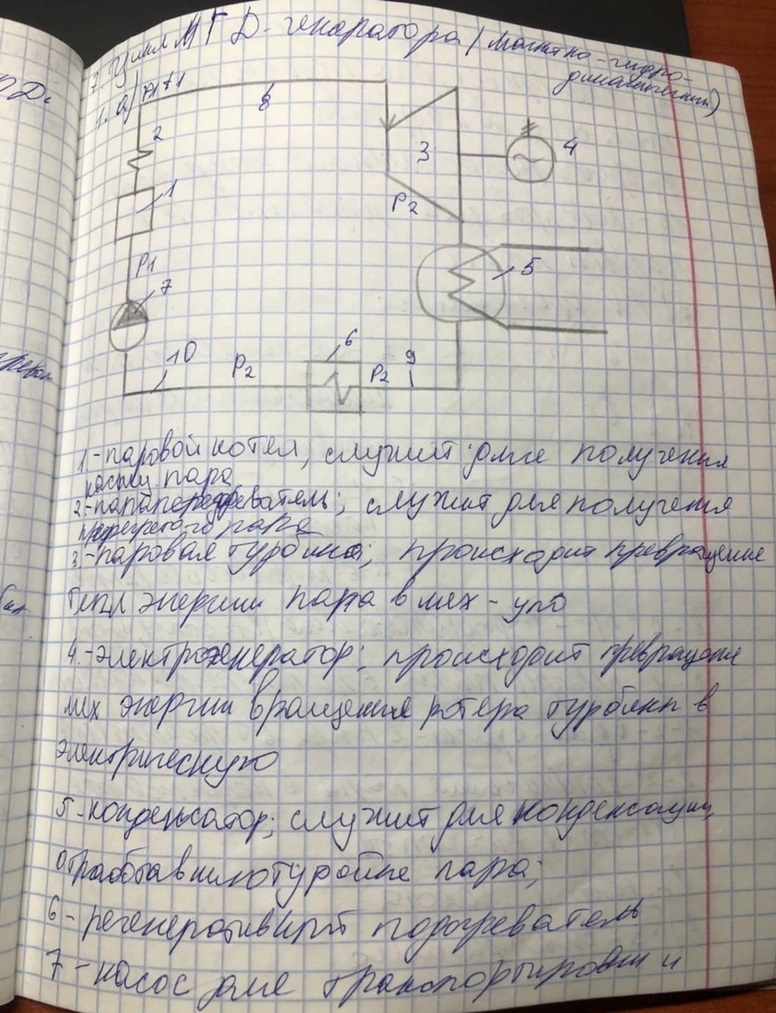 7. Цикл МГД-генератора (магнитно-гидро-
динамический)
1. а) P1 t1
8
2
3
4
1
P2
P1
5
7
6
10
P2
P2
9
1.-паровой котел, служит для получения
насыщ пара
2-пароперегреватель; служит для получения
перегретого пара
3.-паровая турбина; происходит превращение
тепл энергии пара в мех-ую
4.-электрогенератор; происходит превращение
мех энергии вращения ротера турбины в
электрическую
5-конденсатор; служит для конденсации
отработавшего турбине пара;
6-регенеративный подогреватель
7-насос для транспортировки и